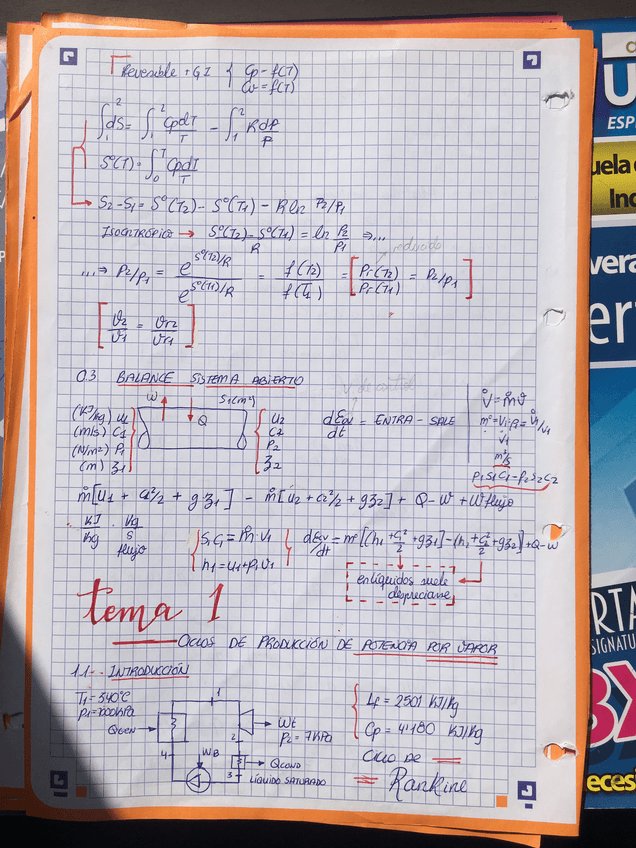 Reversible + GI { Cp = f(T)
Cv = f(T)
∫₁² dS = ∫₁² CpdT/T - ∫₁² Rdp/p
S°(T) = ∫₀ᵀ CpdT/T
→ S2 - S1 = S°(T2) - S°(T1) - R ln P2/P1
Isoentrópico → S°(T2) - S°(T1)/R = ln P2/P1 ⇒...
reducido
...⇒ P2/P1 = e^S°(T2)/R / e^S°(T1)/R = f(T2)/f(T1) = [Pr(T2)/Pr(T1) = P2/P1]
[v2/v1 = vr2/vr1]
0.3 BALANCE SISTEMA ABIERTO
W Q S1(m²)
(KJ/kg) u1
(m/s) C1
(N/m²) P1
(m) z1
u2
C2
P2
z2
dEcv/dt = ENTRA - SALE
V̇ = ṁv
m²/s
P1S1C1 - P2S2C2
ṁ[u1 + c1²/2 + g·z1] - ṁ[u2 + c2²/2 + gz2] + Q - W + W flujo
KJ/Kg · Kg/s flujo
{ S1C1 = ṁ·v1
h1 = u1 + p1v1 }
dEcv/dt = m°[(h1 + c1²/2 + gz1) - (h2 + c2²/2 + gz2)] + Q - W
en líquidos suele
despreciarse
tema 1
CICLOS DE PRODUCCIÓN DE POTENCIA POR VAPOR
1.1- INTRODUCCIÓN
T1 = 340°C
P1 = 1000KPa
QGEN
1
Wt
P2 = 7KPa
2
QCOND
3
LÍQUIDO SATURADO
WB
4
{ Lf = 2501 KJ/Kg
Cp = 4'180 KJ/Kg
Ciclo de
Rankine
U
ESP
uela
Inc
vera
er
RTA
SIGNATUR
3X
eces